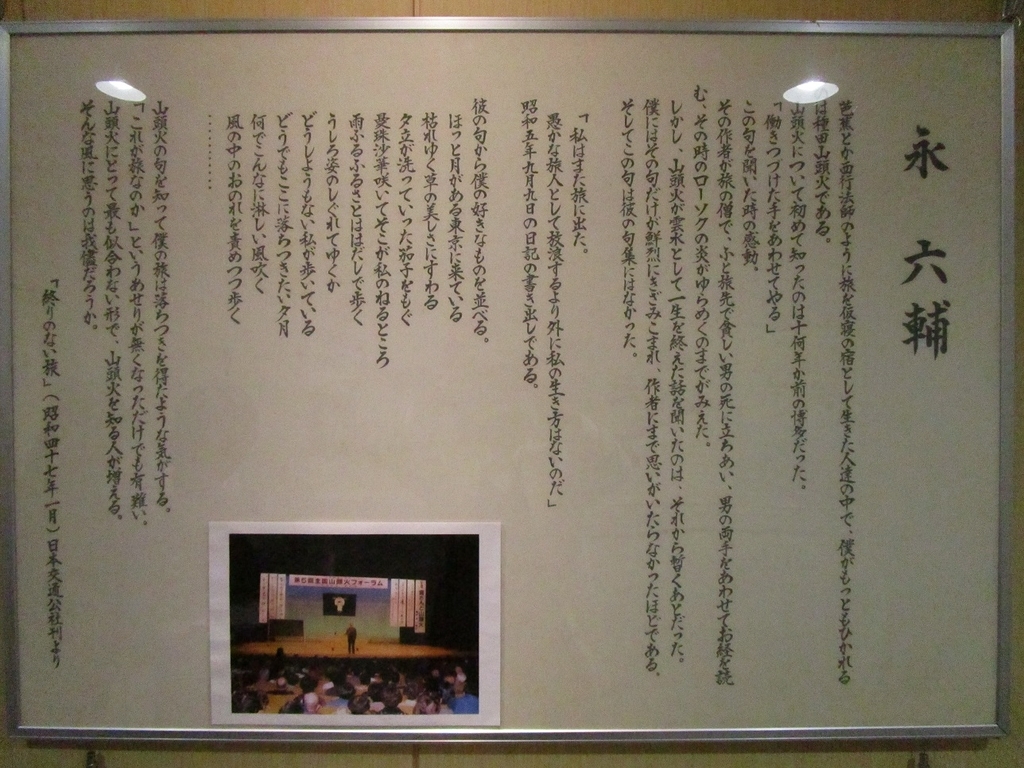 永六輔
芭蕉とか西行法師のように旅を仮寝の宿として生きた人達の中で、僕がもっともひかれる
のは種田山頭火である。
山頭火について初めて知ったのは十何年か前の博多だった。
「働きつづけた手をあわせてやる」
この句を聞いた時の感動。
その作者が旅の僧で、ふと旅先で貧しい男の死に立ちあい、男の両手をあわせてお経を読
む、その時のローソクの炎がゆらめくのまでがみえた。
しかし、山頭火が雲水として一生を終えた話を聞いたのは、それから暫くあとだった。
僕にはその句だけが鮮烈にきざみこまれ、作者にまで思いがいたらなかったほどである。
そしてこの句は彼の句集にはなかった。
「私はまた旅に出た。
愚かな旅人として放浪するより外に私の生き方はないのだ」
昭和五年九月九日の日記の書き出しである。
彼の句から僕の好きなものを並べる。
ほっと月がある東京に来ている
枯れゆく草の美しさにすわる
夕立が洗っていった茄子をもぐ
曼珠沙華咲いてそこが私のねるところ
雨ふるふるさとははだしで歩く
うしろ姿のしぐれてゆくか
どうしようもない私が歩いている
どうでもここに落ちつきたい夕月
何でこんなに淋しい風吹く
風の中のおのれを責めつつ歩く
………
山頭火の句を知って僕の旅は落ちつきを得たような気がする。
「これが旅なのか」というあせりが無くなっただけでも有難い。
山頭火にとって最も似合わない形で、山頭火を知る人が増える。
そんな風に思うのは我儘だろうか。
「終りのない旅」（昭和四十七年一月）日本交通公社刊より
山頭火フォーラム